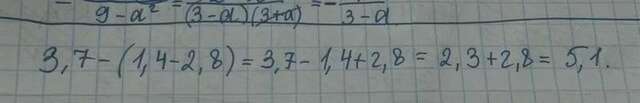 9-a² = (3-a)(3+a) = - 3-a
3,7-(1,4-2,8)=3,7-1,4+2,8=2,3+2,8=5,1.